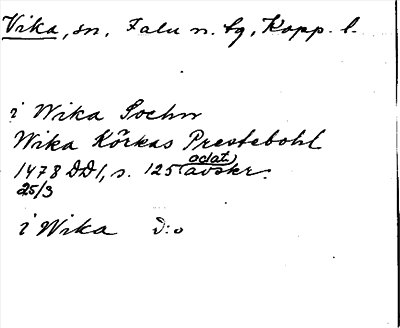 Vika, sn, Falu n. tg, Kopp. l.
i Wika Sochn
Wika Körkas Prestebohl
1478 DD1, s. 125 (odat.) avskr.
25/3
i Wika D:o